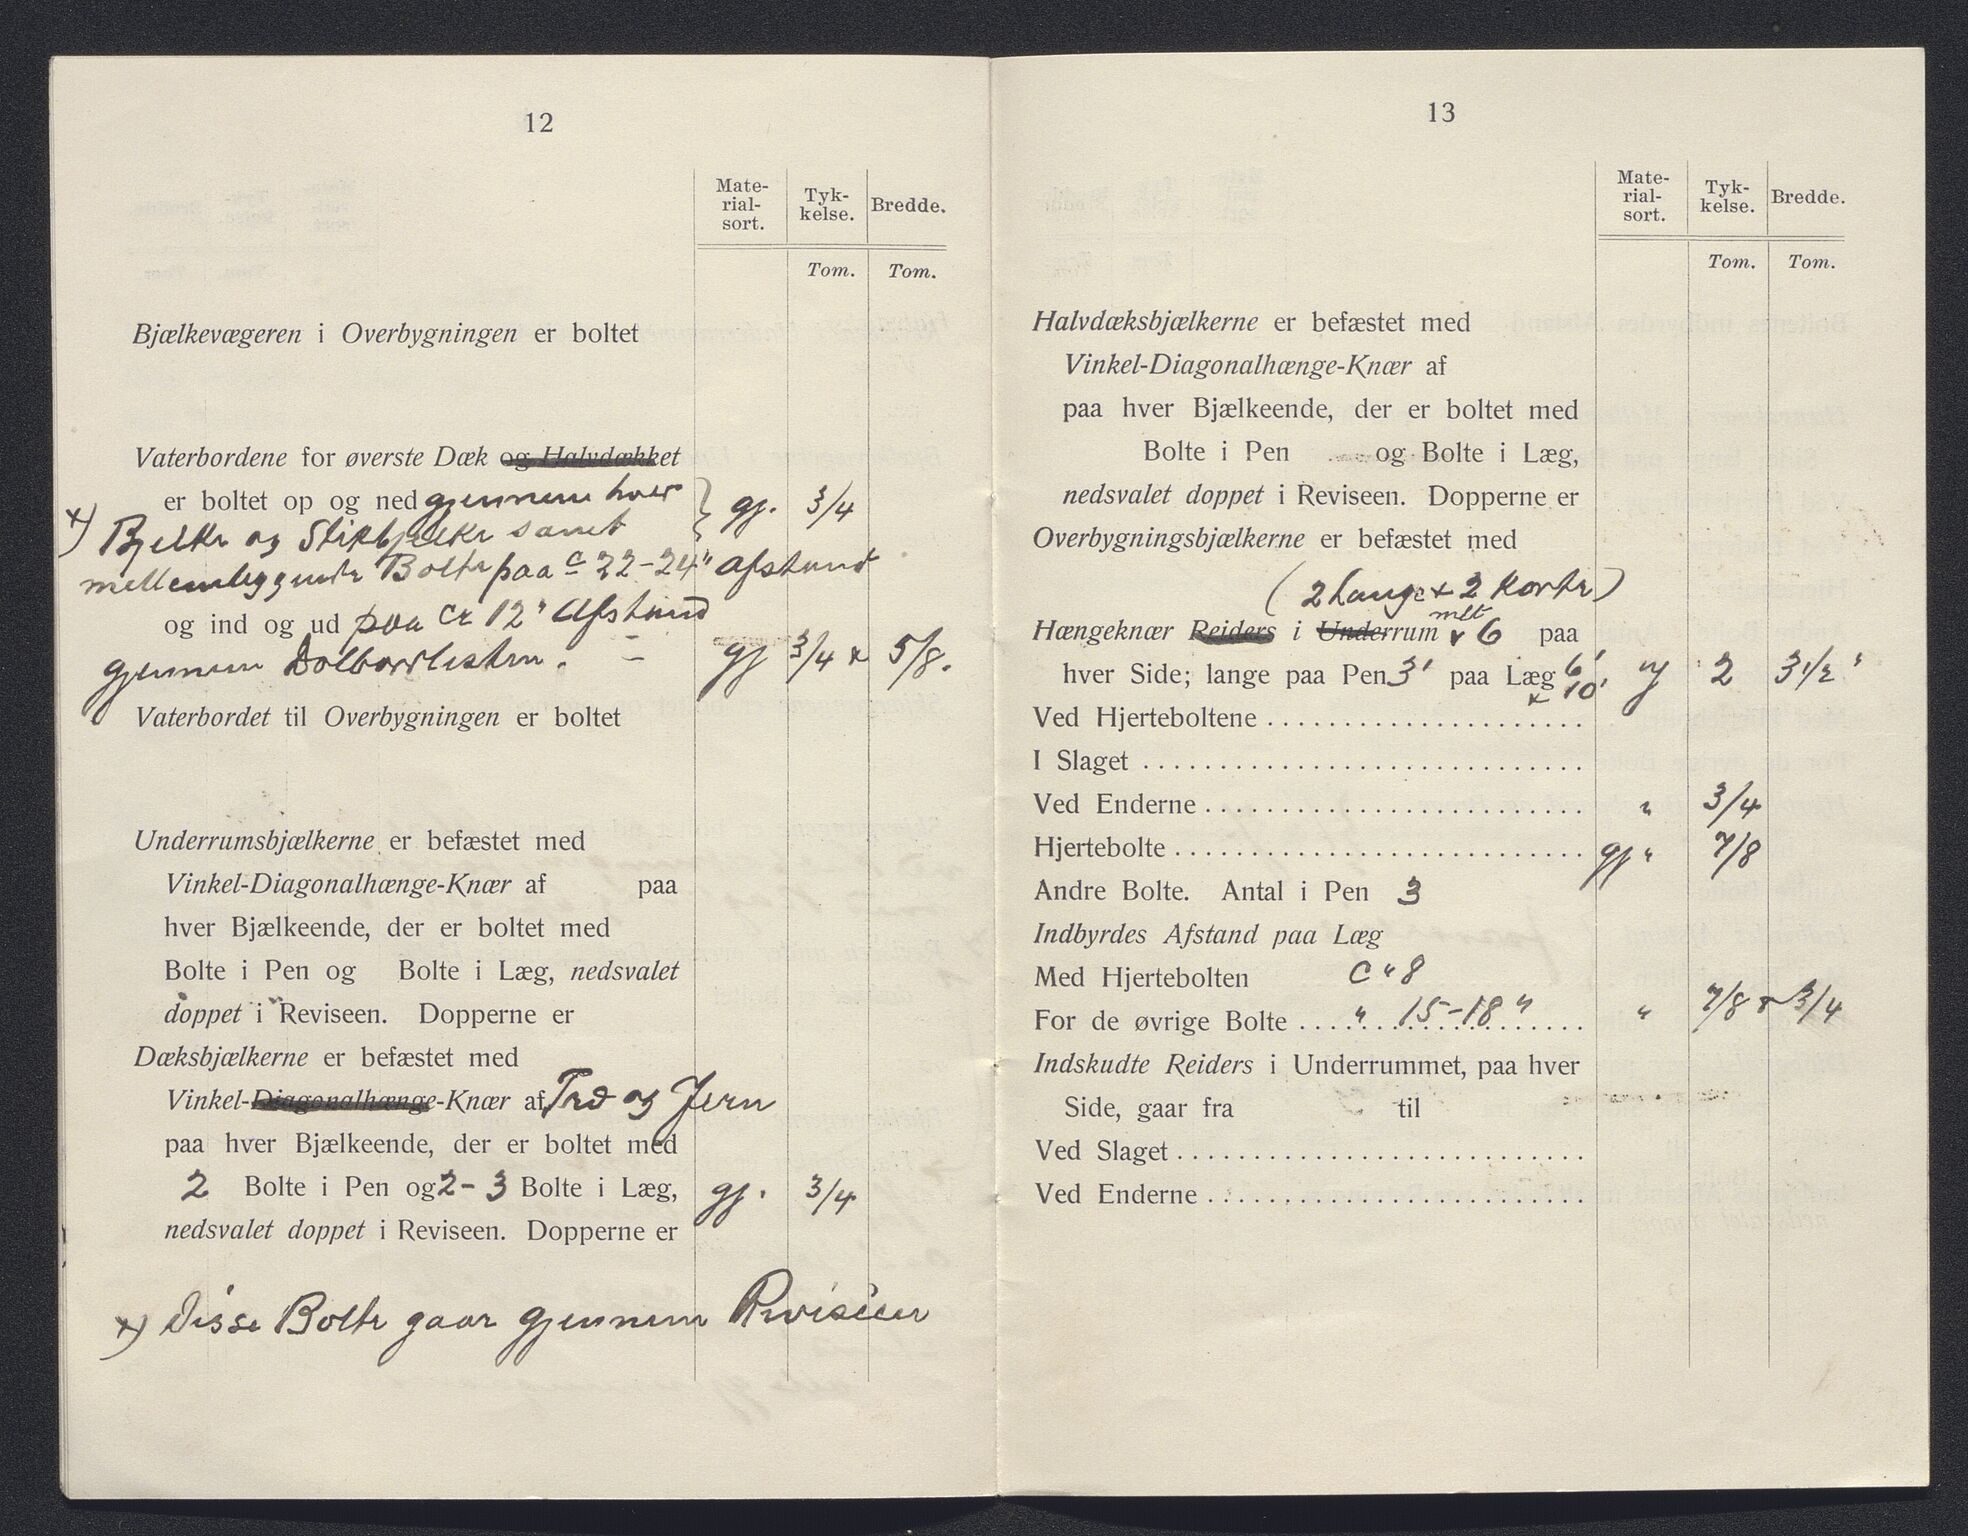 12
Mate-
rial-
sort.
Tyk-
kelse.
Bredde.
Tom.
Tom.
Bjælkevægeren i Overbygningen er boltet
Vaterbordene for øverste Dæk og Halvdækket
er boltet op og ned gjennem hver gj. 3/4
x) Bjelke og Stikbjelke samt
mellemliggende Bolte paa c 22-24" afstand
og ind og ud paa ca 12" Afstand
gjennem Dolbordlisten. – gj 3/4 x 5/8.
Vaterbordet til Overbygningen er boltet
Underrumsbjælkerne er befæstet med
Vinkel-Diagonalhænge-Knær af paa
hver Bjælkeende, der er boltet med
Bolte i Pen og Bolte i Læg, nedsvalet
doppet i Reviseen. Dopperne er
Dæksbjælkerne er befæstet med
Vinkel-Diagonalhænge-Knær af Træ og Jern
paa hver Bjælkeende, der er boltet med
2 Bolte i Pen og 2-3 Bolte i Læg, gj. 3/4
nedsvalet doppet i Reviseen. Dopperne er
x) Disse Bolte gaar gjennem Reviseen
13
Mate-
rial-
sort.
Tyk-
kelse.
Bredde.
Tom.
Tom.
Halvdæksbjælkerne er befæstet med
Vinkel-Diagonalhænge-Knær af
paa hver Bjælkeende, der er boltet med
Bolte i Pen og Bolte i Læg,
nedsvalet doppet i Reviseen. Dopperne er
Overbygningsbjælkerne er befæstet med
(2 lange + 2 korte)
Hængeknær Reiders i Underrum 6 paa
hver Side; lange paa Pen 3' paa Læg 6' 2 3 1/2 "
x 10'
Ved Hjerteboltene
I Slaget
Ved Enderne " 3/4
Hjertebolte gj " 7/8
Andre Bolte. Antal i Pen 3
Indbyrdes Afstand paa Læg
Med Hjertebolten C " 8
For de øvrige Bolte " 15-18 " " 7/8 x 3/4
Indskudte Reiders i Underrummet, paa hver
Side, gaar fra til
Ved Slaget
Ved Enderne